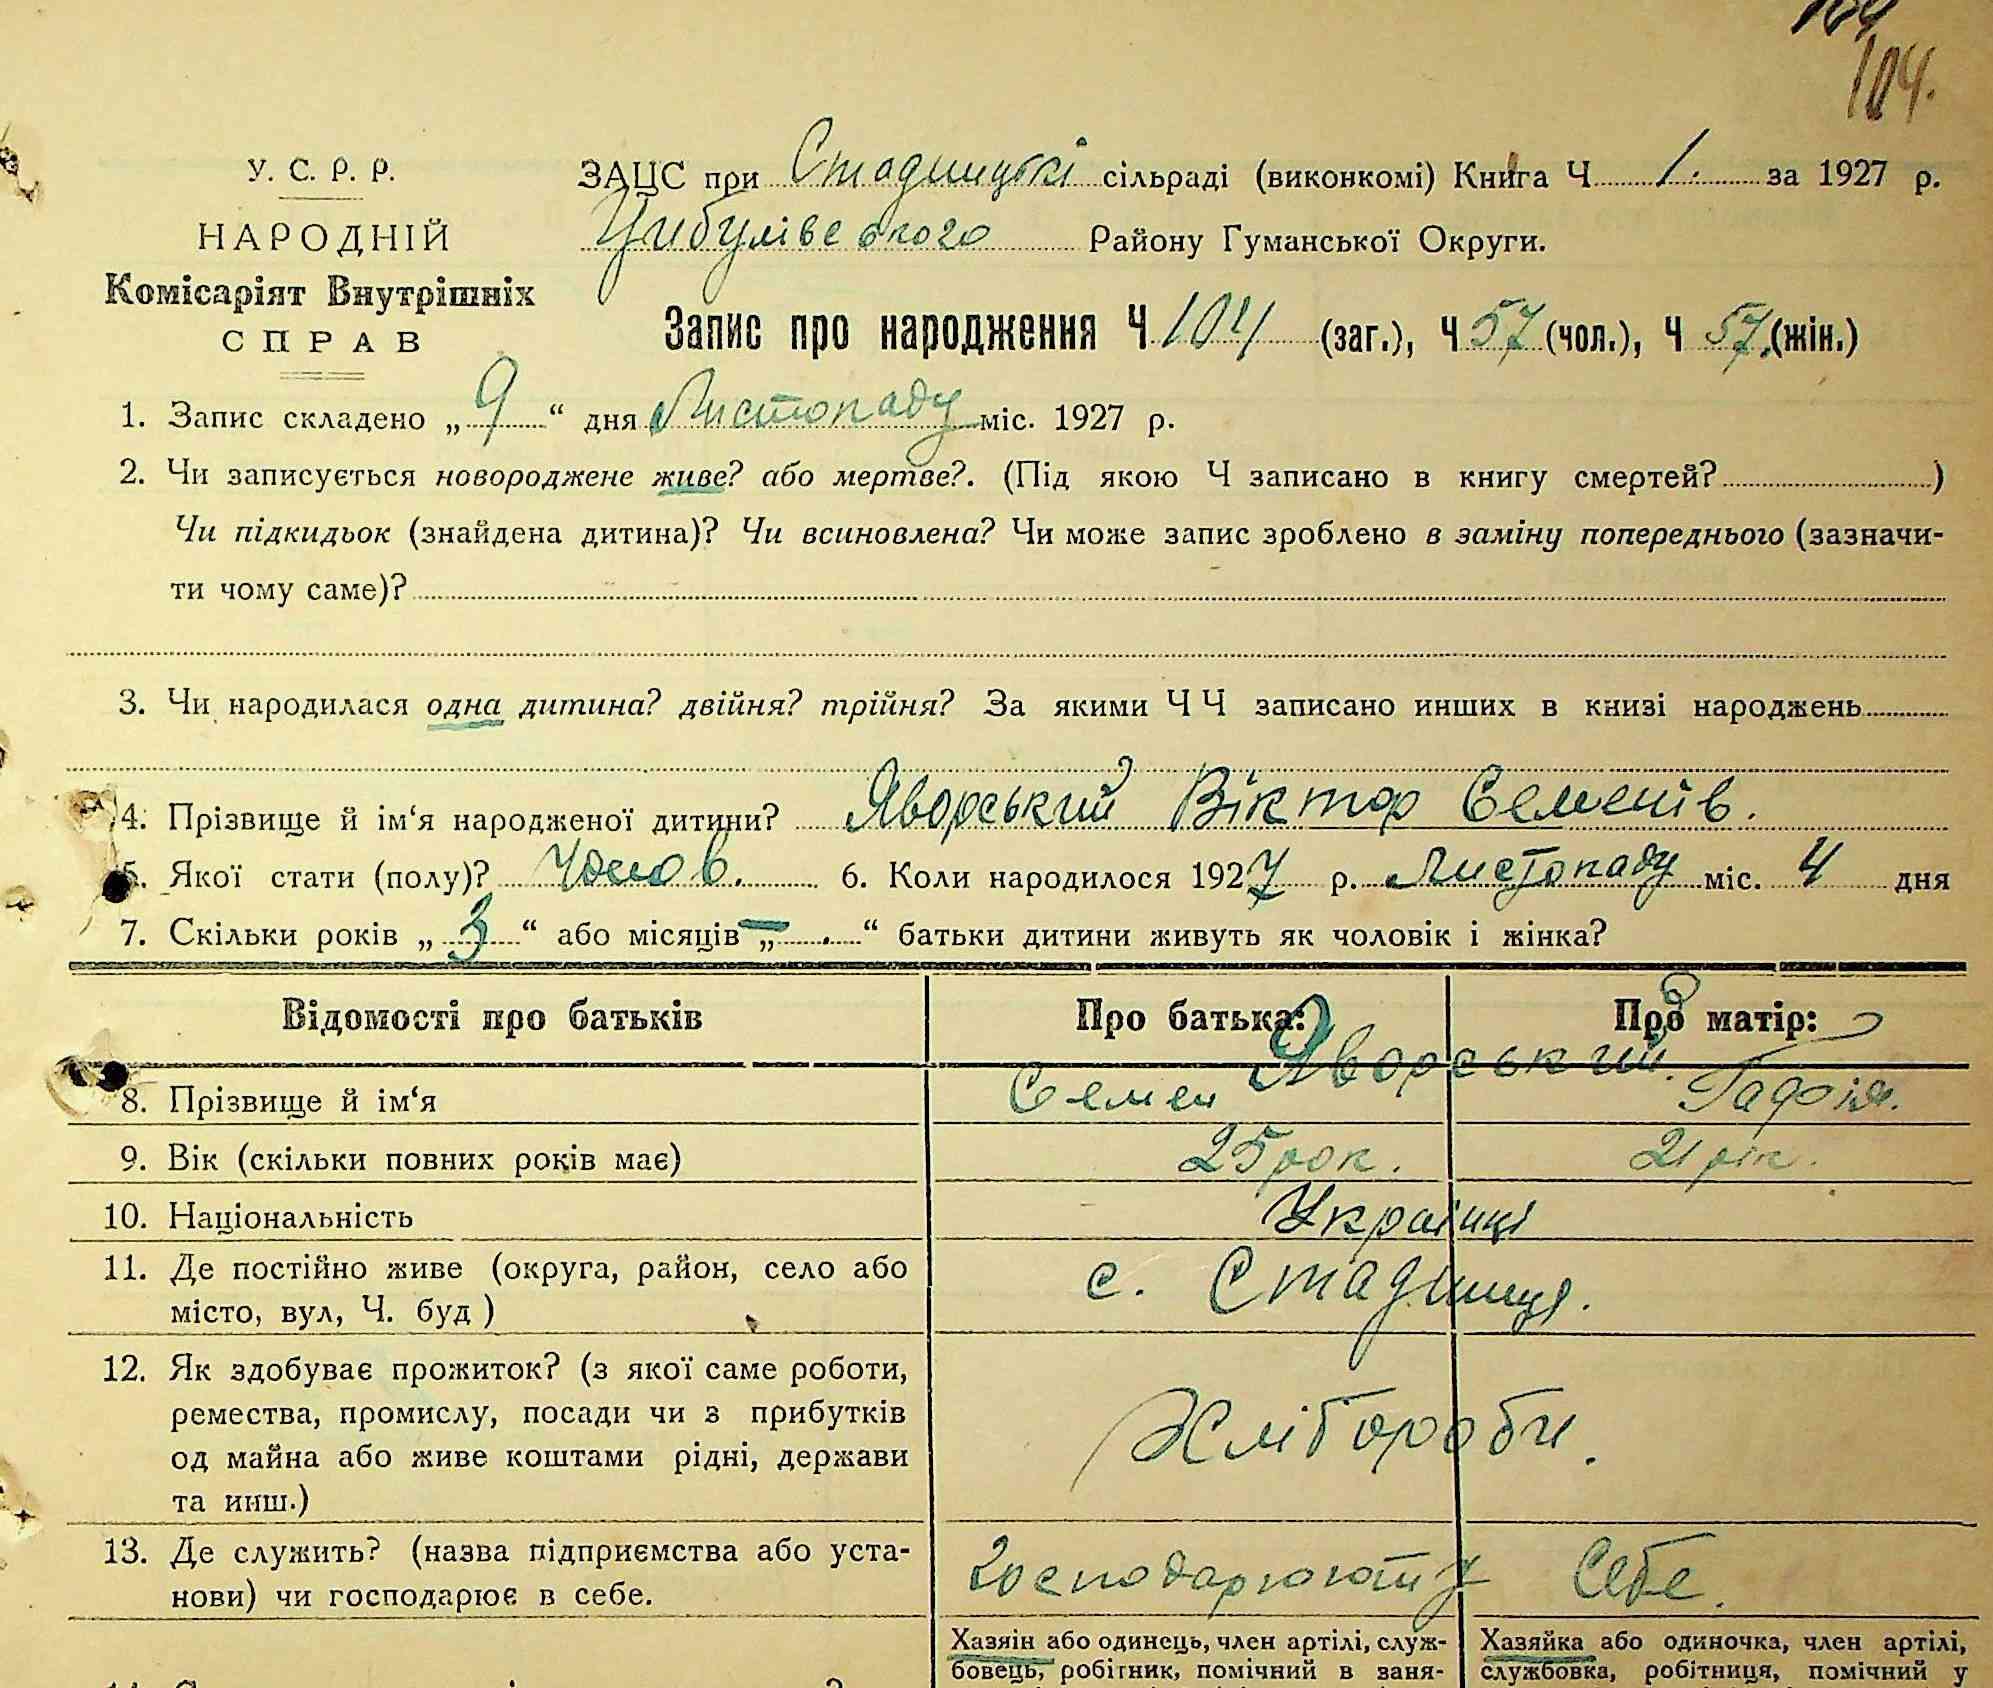 104.
У. С. Р. Р.
НАРОДНІЙ
Комісаріят Внутрішніх
СПРАВ
ЗАЦС при Стадницькі сільраді (виконкомі) Книга Ч 1. за 1927 р.
Цибулівського Району Гуманської Округи.
Запис про народження Ч 104 (заг.), Ч 57 (чол.), Ч 57. (жін.)
1. Запис складено „ 9 “ дня Листопаду міс. 1927 р.
2. Чи записується новороджене живе? або мертве?. (Під якою Ч записано в книгу смертей? )
Чи підкидьок (знайдена дитина)? Чи всиновлена? Чи може запис зроблено в заміну попереднього (зазначи-
ти чому саме)?
3. Чи народилася одна дитина? двійня? трійня? За якими ЧЧ записано инших в книзі народжень
4. Прізвище й ім‘я народженої дитини? Яворський Віктор Семенів.
5. Якої стати (полу)? Чолов. 6. Коли народилося 1927 р. Листопаду міс. 4 дня
7. Скільки років „ 3 “ або місяців „ — . “ батьки дитини живуть як чоловік і жінка?
Відомості про батьків Про батька: Про матір:
8. Прізвище й ім‘я Семен Яворський. Гафія.
9. Вік (скільки повних років має) 25 рок. 21 рік.
10. Національність Українці
11. Де постійно живе (округа, район, село або
місто, вул, Ч. буд ) с. Стадниця.
12. Як здобуває прожиток? (з якої саме роботи,
ремества, промислу, посади чи з прибутків
од майна або живе коштами рідні, держави
та инш.) Хлібороби.
13. Де служить? (назва підприємства або уста-
нови) чи господарює в себе. Господарюють у Себе.
Хазяін або одинець, член артілі, служ-
бовець, робітник, помічний в заня-
Хазяйка або одиночка, член артілі,
службовка, робітниця, помічний у